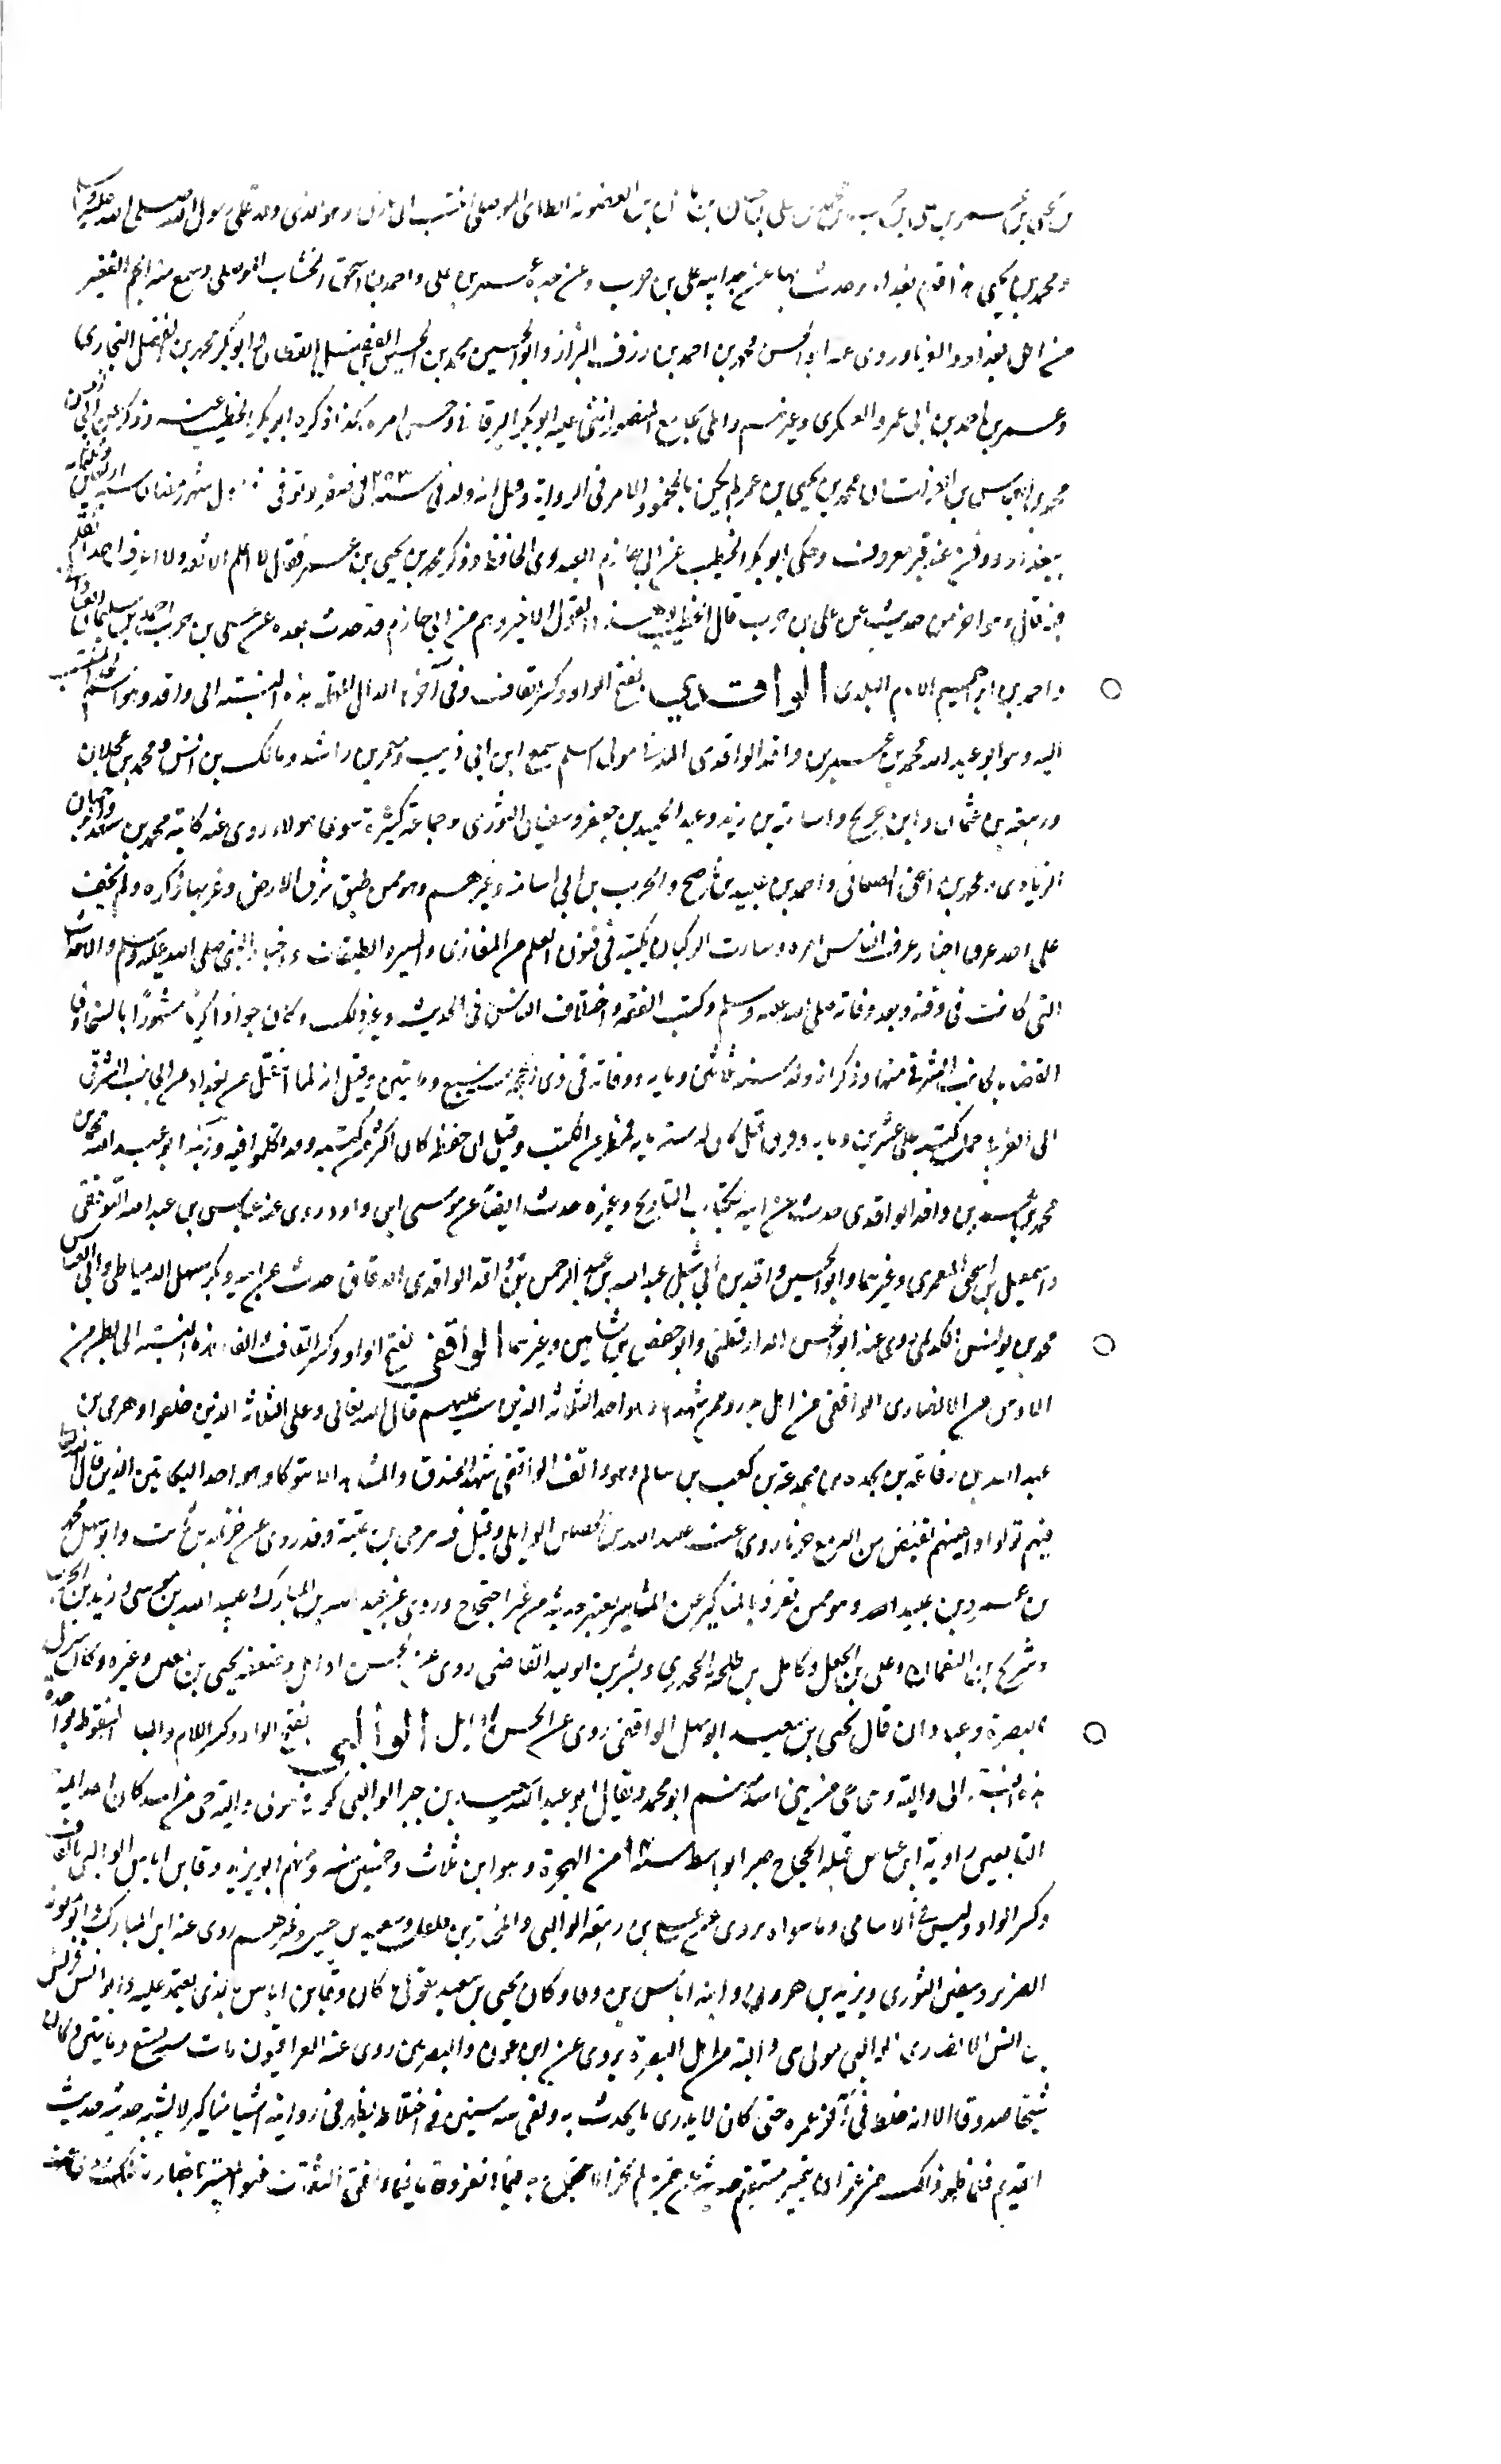 بن يحيى بن عمر بن علي بن حرب بن محمد بن علي بن حيان بن مازن بن الغضوبة الطائي الموصلي انتسب الى مازن وهو الذي وفد على رسول الله صلى الله عليه وسلم
ومحمد بن يحيى هذا قدم بغداد وحدث بها عن جد ابيه علي بن حرب وعن جده عمر بن علي واحمد بن اسحق الخشاب الموصلي وسمع منه الجم الغفير
من اهل بغداد والغربا وروى عنه ابو الحسن محمد بن احمد بن رزق البزاز وابو الحسين محمد بن الحسين بن الفضل القطان وابو بكر محمد بن
وعمر بن احمد بن ابي عمرو العكبري وغيرهم واملى بجامع المنصور اثنى عليه ابو بكر البرقاني وحسن امره هكذا ذكره ابو بكر الخطيب عنه وذكر عن ابي الحسن
محمد بن العباس بن الفرات ان محمد بن يحيى بن عمر لم يكن بالمحمود الامر في الرواية وقيل انه ولد في سنة ٢٥٣ في صفر وتوفي في شهر رمضان سنة اربعين وثلثمائة
ببغداد ودفن عند قبر معروف وحكى ابو بكر الخطيب عن ابي حازم العبدوي الحافظ وذكر محمد بن يحيى بن عمر فقال لا اعلم الا ثقة ولا اعرف احدا
قال الخطيب هذا القول الاخير وهم من ابي حازم قد حدث بعده عن علي بن حرب احمد بن سليمان العباداني
واحمد بن ابراهيم الامام البلدي الواقدي بفتح الواو وكسر القاف وفي آخرها الدال المهملة هذه النسبة الى واقد وهو اسم لجد المنتسب
اليه وهو ابو عبد الله محمد بن عمر بن واقد الواقدي المدني مولى اسلم سمع ابن ابي ذيب ومعمر بن راشد ومالك بن انس ومحمد بن عجلان
وربيعة بن عثمان وابن جريج واسامة بن زيد وعبد الحميد بن جعفر وسفيان الثوري وجماعة كثيرة سوى هولاء روى عنه كاتبه محمد بن سعد وابو حسان
الزيادي ومحمد بن اسحق الصغاني واحمد بن عبيد بن ناصح والحرب بن ابي اسامة وغيرهم وهو ممن طبق شرق الارض وغربها ذكره ولم يخف
على احد عرف اخبار الناس امره وسارت الركبان بكتبه في فنون العلم من المغازي والسير والطبقات واخبار النبي صلى الله عليه وسلم والاحداث
التي كانت في وقته وبعد وفاته صلى الله عليه وسلم وكتب الفقه واختلاف الناس في الحديث وغير ذلك وكان جوادا كريما مشهورا بالسخا
القضاء بالجانب الشرقي منها وذكر انه ولد سنة ثلاثين وماية ووفاته في ذي الحجة سنة سبع ومايتين وقيل انه لما انتقل من بغداد من الجانب الشرقي
الى الغربي حمل كتبه على عشرين وماية وقر وقيل كان له ستماية قمطر من الكتب وقيل ان حفظه كان اكثر من كتبه وقد تكلموا فيه وابنه ابو عبد الله محمد بن
محمد بن عمر بن واقد الواقدي حدث عن ابيه بكتاب التاريخ وغيره حدث ايضا عن موسى ابن داود روى عنه عباس بن عبد الله الترقفي
واسمعيل بن اسحق المعمري وغيرهما وابو الحسين واقد بن ابي شبل عبد الله بن عبد الرحمن بن واقد الواقدي الدقاق حدث عن ابيه وبكر بن سهل الدمياطي وابي العباس
محمد بن يونس الكديمي روى عنه ابو الحسن الدارقطني وابو حفص بن شاهين وغيرهما الواقفي بفتح الواو وكسر القاف والفاء هذه النسبة الى بطن من
الاوس من الانصار الواقفي من اهل بدر وهو احد الثلاثة الذين تيب عليهم قال الله تعالى وعلى الثلاثة الذين خلفوا وهرمي بن
عبد الله بن رفاعة بن نجدة بن مجدعة بن كعب بن سالم وهو واقف الواقفي شهد الخندق والمشاهد الا تبوكا وهو احد البكايين الذين قال الله تعالى
فيهم تولوا واعينهم تفيض من الدمع حزنا روى عنه عبد الله بن الوايلي وقيل فيه هرمي بن عتبة وقد روى عن خزيمة بن ثابت وابو سهل محمد
بن عمرو بن عبيد الله وهو ممن تفرد بالمناكير عن المشاهير يعتبر حديثه من غير احتجاج روى عنه عبد الله بن المبارك وعبيد الله بن موسى وزيد بن الحباب
وشريح بن النعمان وعلي بن الجعد وكامل بن طلحة الجحدري وبشر بن الوليد القاضي روى عن الحسن وضعفه يحيى بن معين وغيره وكان ينزل
بالبصرة وعبادان قال يحيى بن معين ابو سهل الواقفي روى عن الحسن الوالبي بفتح الواو وكسر اللام والبا المنقوطة بواحدة
هذه النسبة الى والبة وهي حي من بني اسد منهم ابو محمد ويقال ابو عبد الله سعيد بن جبير الوالبي كوفي مولى والبة حي من اسد كان احد ايمة
التابعين راوية ابن عباس قتله الحجاج صبرا بواسط سنة من الهجرة وهو ابن ثلاث وخمسين سنة ومنهم ابو يزيد وقا بن اياس الوالبي بالقاف
وكسر الواو وليس في الاسامي وقا سواه يروي عن علي بن ربيعة الوالبي والمختار بن فلفل وسعيد بن جبير وغيرهم روى عنه ابن المبارك وابو معوية
الضرير وسفين الثوري ويزيد بن هرون وابنه اياس بن وقا وكان يحيى بن سعيد يقول ما كان وقا بن اياس بالذي يعتمد عليه وابو انس قريش
بن انس الانصاري الوالبي مولى بني والبة من اهل البصرة يروي عن ابن عون والبصريين روى عنه العراقيون مات سنة تسع ومايتين وكان
شيخا صدوقا الا انه خلط في آخر عمره حتى كان لا يدري ما يحدث به وبقي ست سنين في اختلاطه فظهر في روايته اشيا مناكير لا تشبه حديثه حديث
القديم فلما ظهر ذلك من غير ان يتميز مستقيم حديثه من غيره لم يجز الاحتجاج به فيما انفرد فاما فيما وافق الثقات فهو المعتبر باخباره تلك